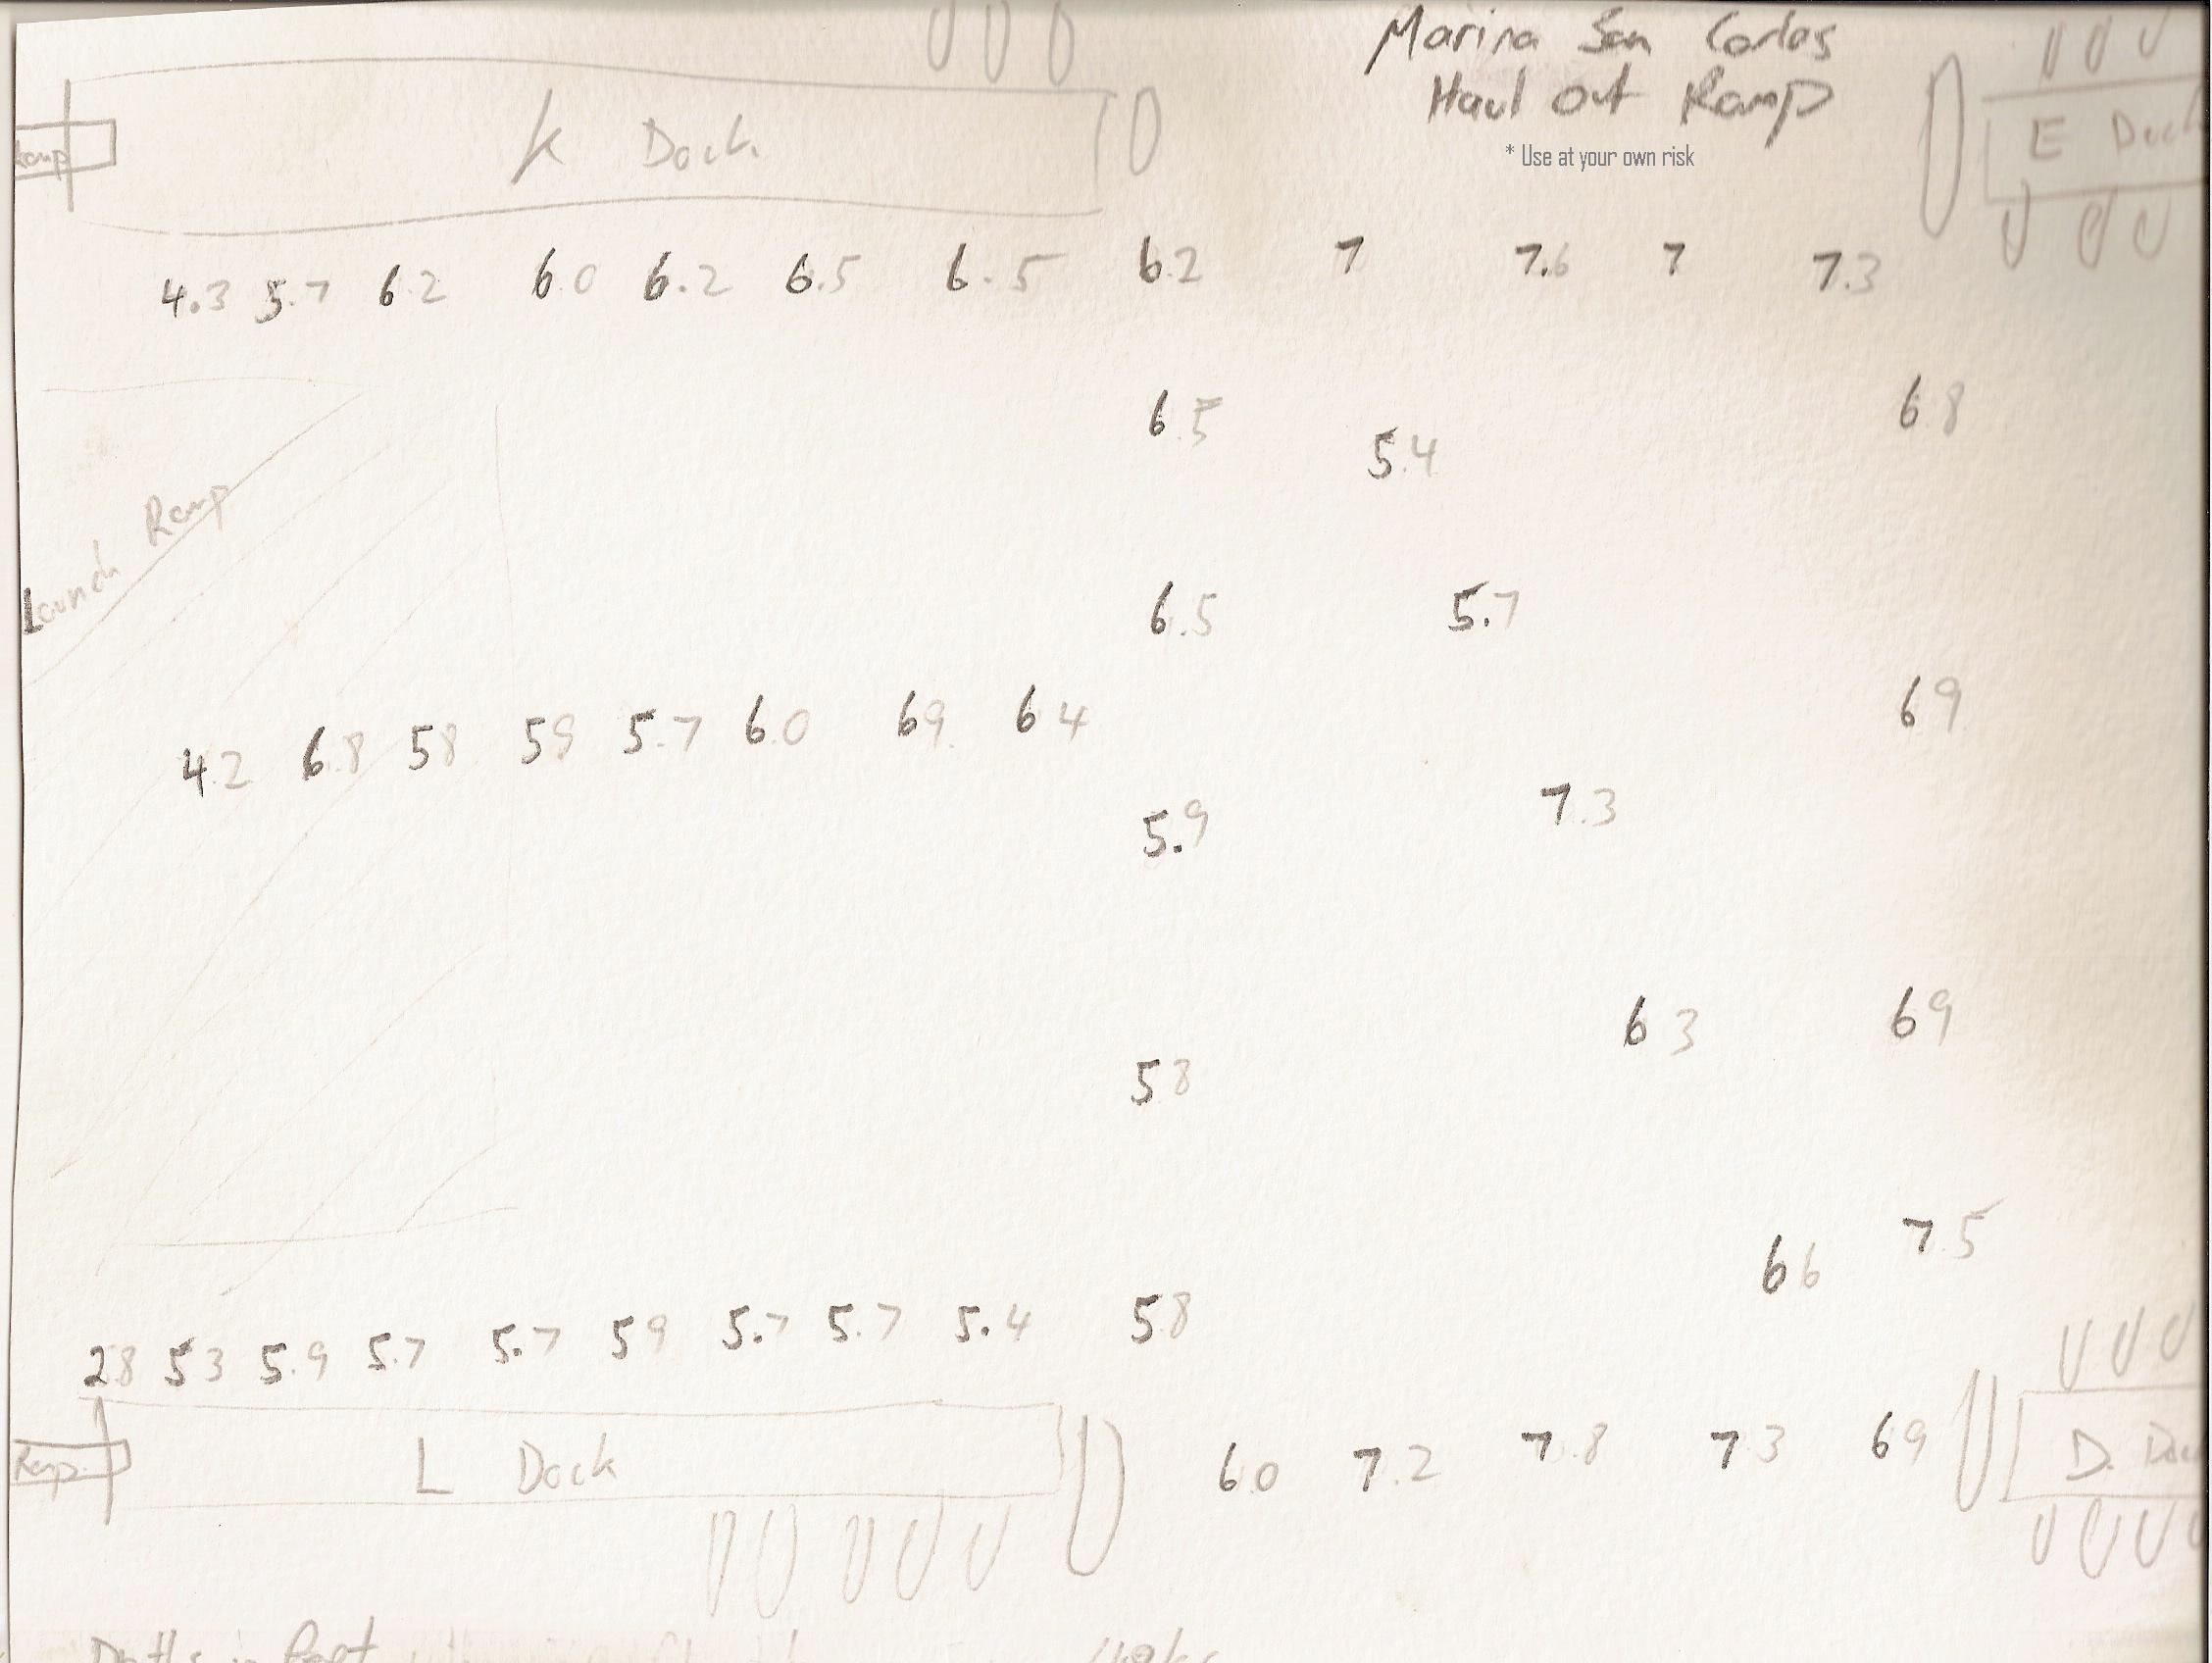 Marina San Carlos
Haul Out Ramp
* Use at your own risk
K Dock
E Dock
Ramp
4.3 5.7 6.2 6.0 6.2 6.5 6.5 6.2 7 7.6 7 7.3
6.5 5.4 6.8
Launch Ramp
6.5 5.7
4.2 6.8 5.8 5.9 5.7 6.0 6.9 6.4 6.9
5.9 7.3
6.3 6.9
5.8
6.6 7.5
2.8 5.3 5.9 5.7 5.7 5.9 5.7 5.7 5.4 5.8
Ramp
L Dock
6.0 7.2 7.8 7.3 6.9
D. Dock